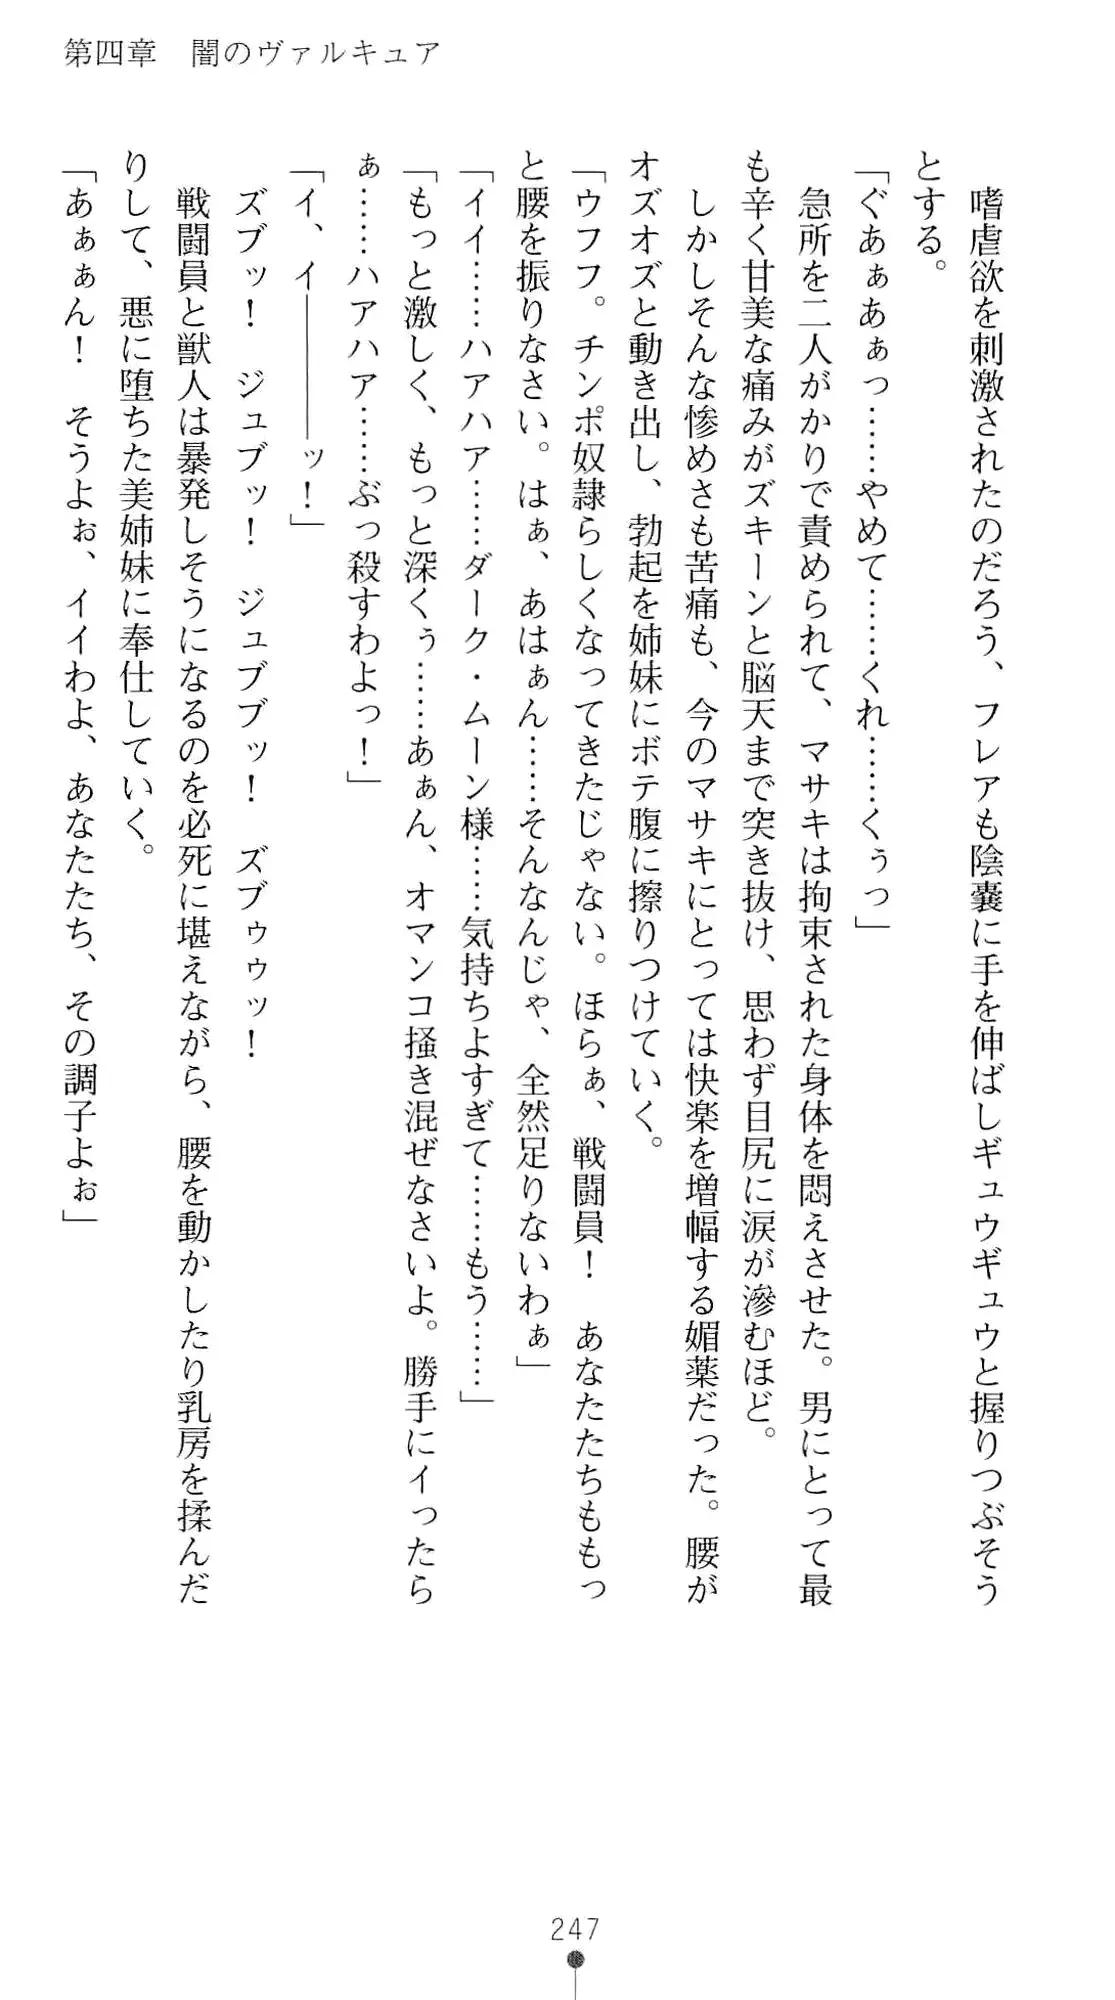 第四章　闇のヴァルキュア
　嗜虐欲を刺激されたのだろう、フレアも陰嚢に手を伸ばしギュウギュウと握りつぶそう
とする。
「ぐあぁあぁっ……やめて……くれ……くぅっ」
　急所を二人がかりで責められて、マサキは拘束された身体を悶えさせた。男にとって最
も辛く甘美な痛みがズキーンと脳天まで突き抜け、思わず目尻に涙が滲むほど。
　しかしそんな惨めさも苦痛も、今のマサキにとっては快楽を増幅する媚薬だった。腰が
オズオズと動き出し、勃起を姉妹にボテ腹に擦りつけていく。
「ウフフ。チンポ奴隷らしくなってきたじゃない。ほらぁ、戦闘員！　あなたたちももっ
と腰を振りなさい。はぁ、あはぁん……そんなんじゃ、全然足りないわぁ」
「イイ……ハアハア……ダーク・ムーン様……気持ちよすぎて……もう……」
「もっと激しく、もっと深くぅ……あぁん、オマンコ掻き混ぜなさいよ。勝手にイったら
ぁ……ハアハア……ぶっ殺すわよっ！」
「イ、イ――――ッ！」
　ズブッ！　ジュブッ！　ジュブブッ！　ズブゥゥッ！
　戦闘員と獣人は暴発しそうになるのを必死に堪えながら、腰を動かしたり乳房を揉んだ
りして、悪に堕ちた美姉妹に奉仕していく。
「あぁぁん！　そうよぉ、イイわよ、あなたたち、その調子よぉ」
247